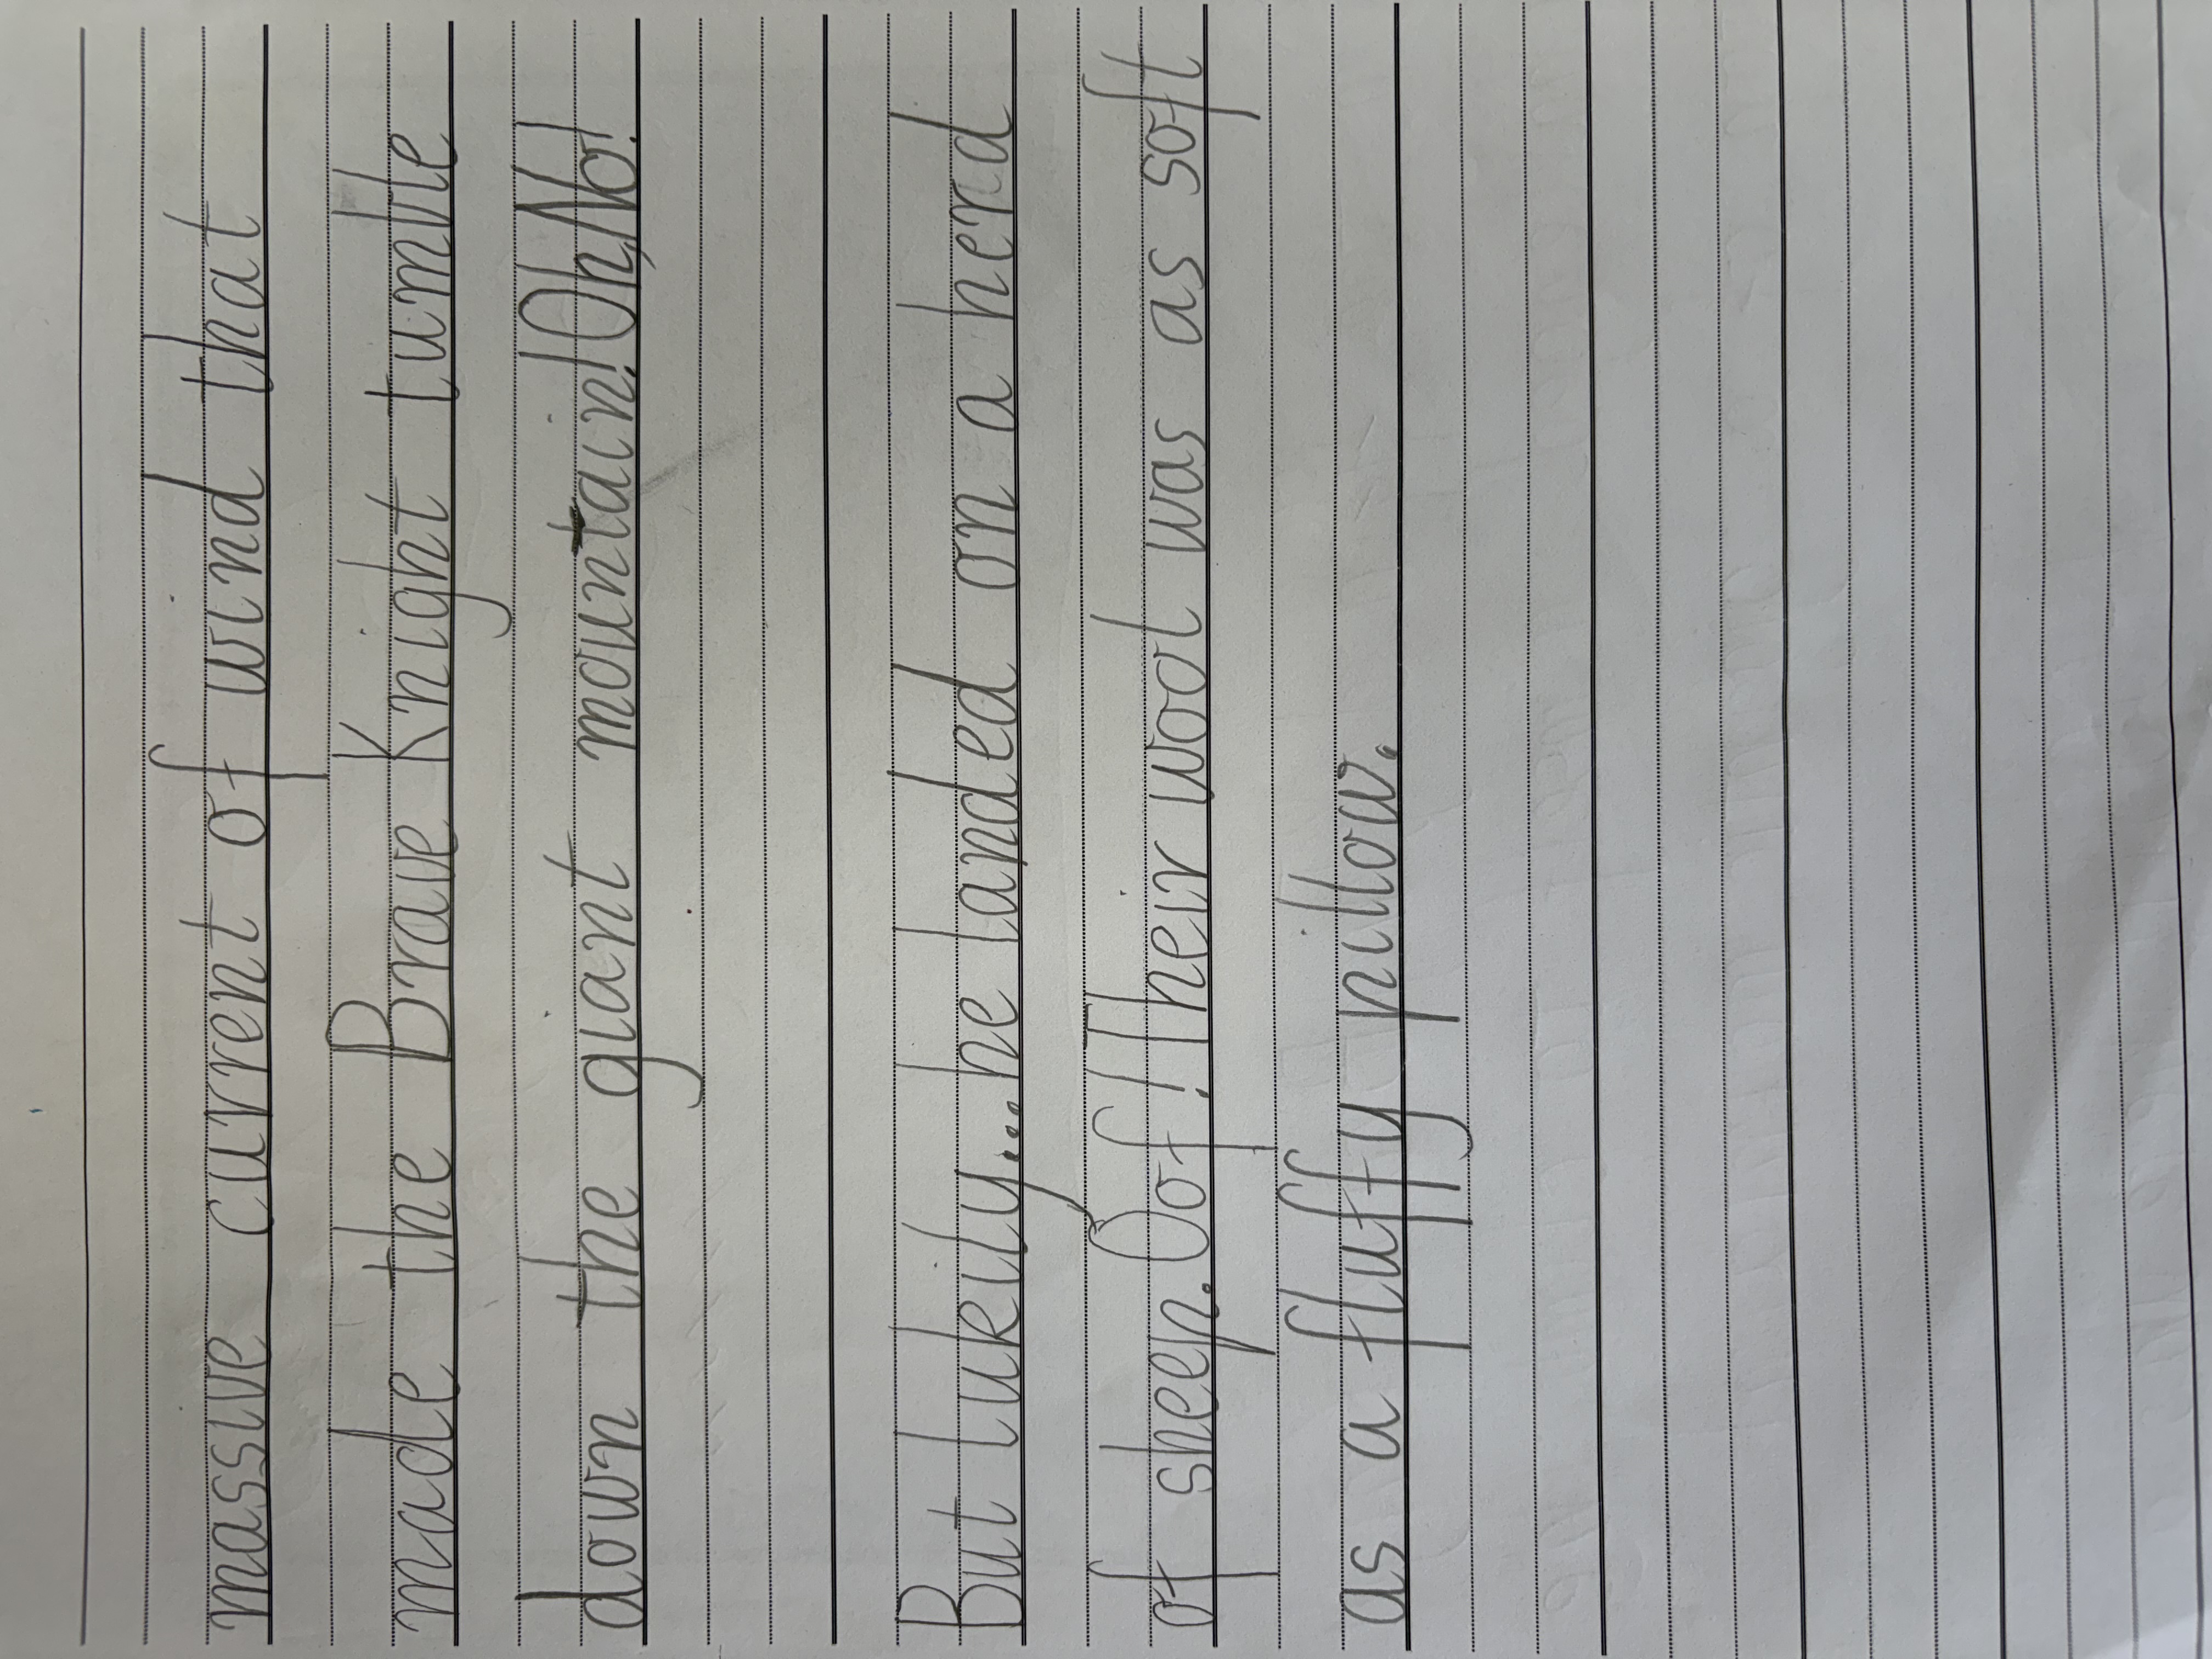 massive current of wind that
made the Brave Knight tumble
down the giant mountain! Oh, No!
But lukily... he landed on a herd
of sheep. Oof! Their wool was as soft
as a fluffy pillow.